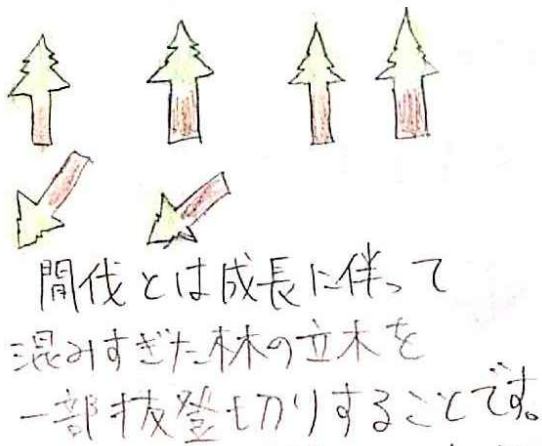 間伐とは成長に伴って
混みすぎた林の立木を
一部抜登切りすることです。